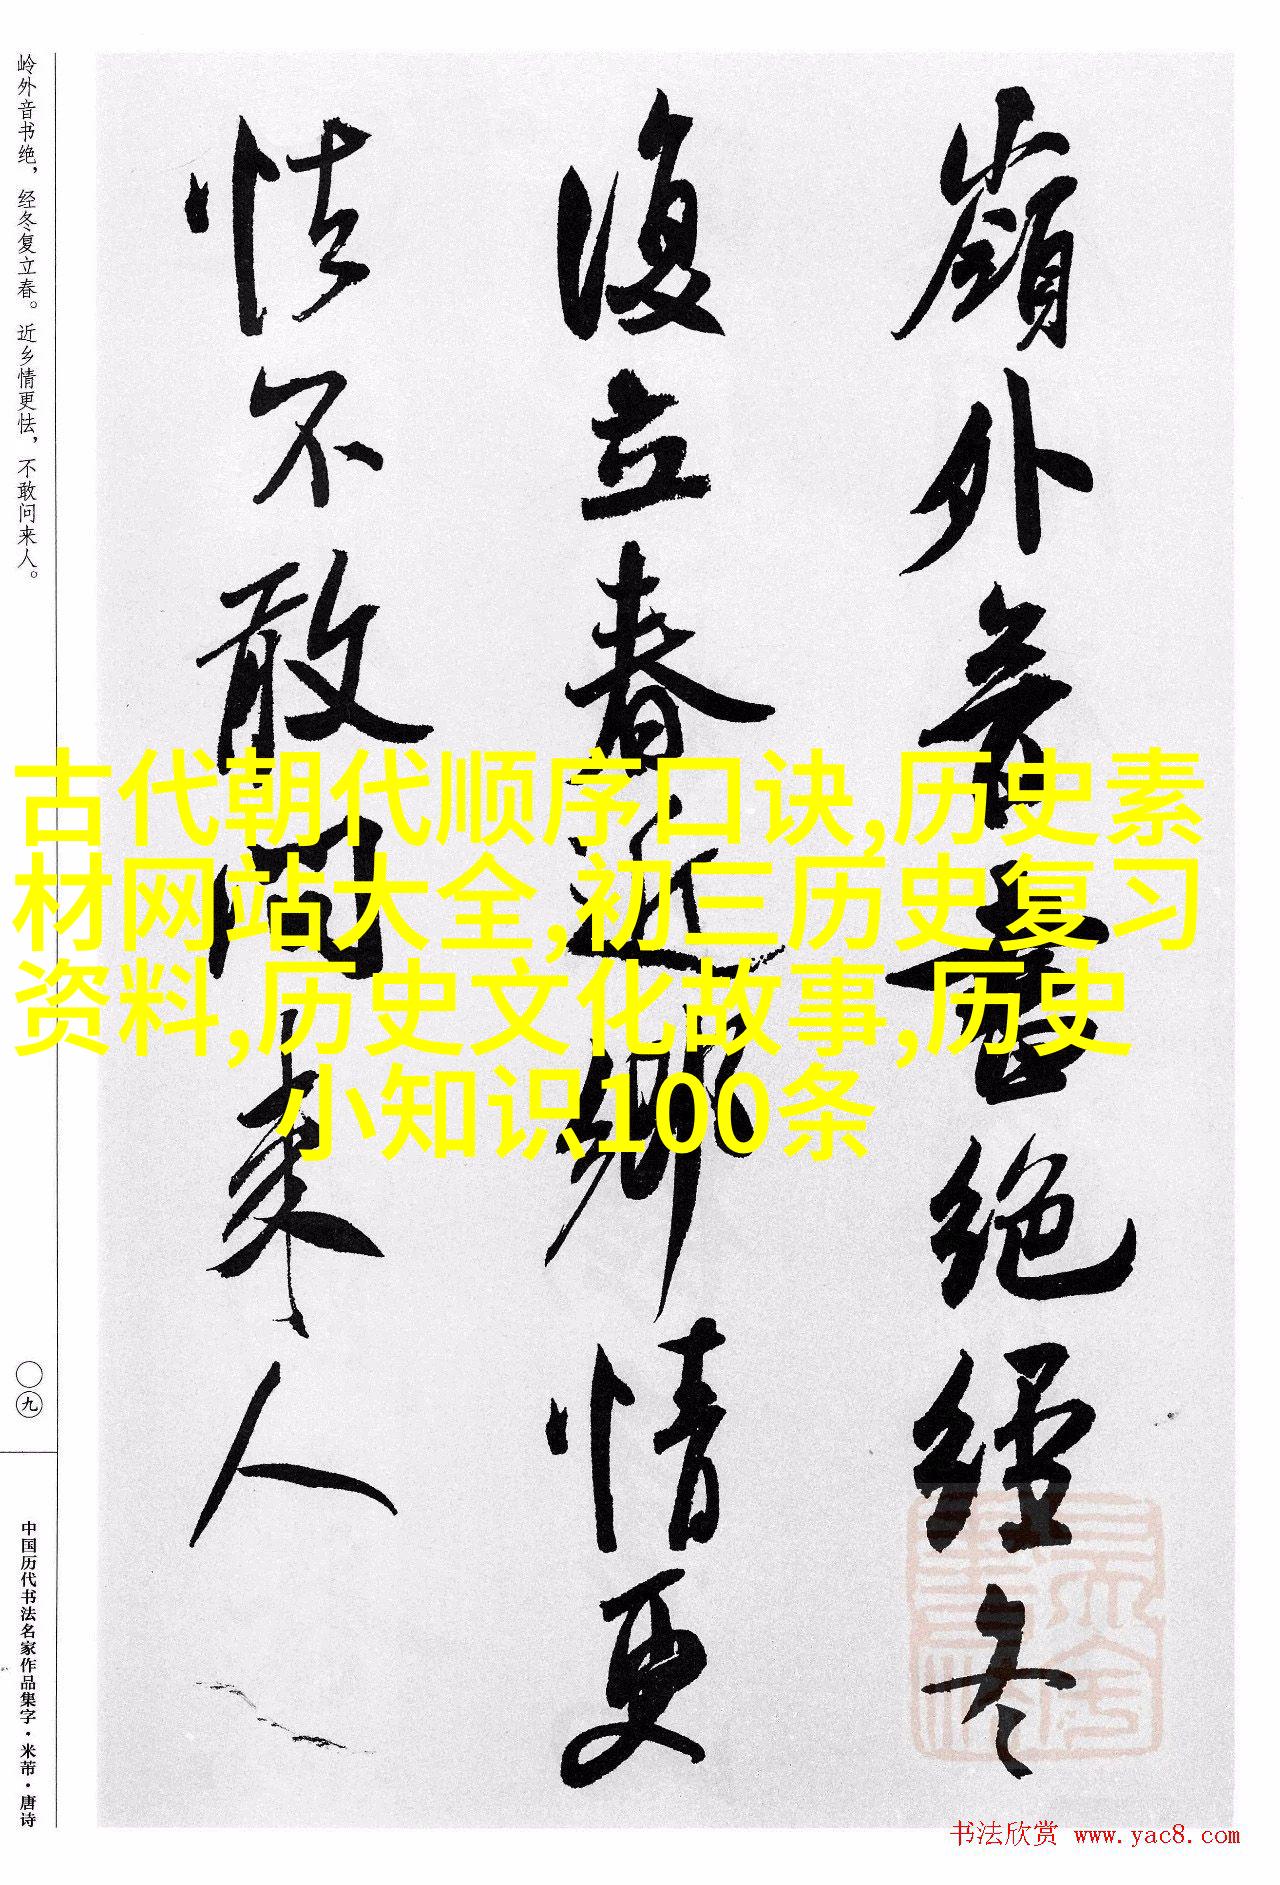 嶺外音書絶經冬
復立春近鄉情更
怯不敢問来人
岭外音书绝，经冬复立春。近乡情更怯，不敢问来人。
〇九
中国历代书法名家作品集字·米芾·唐诗
古代朝代顺序口诀,历史素
材网站大全,初三历史复习
资料,历史文化故事,历史
小知识100条
书法欣赏 www.yac8.com